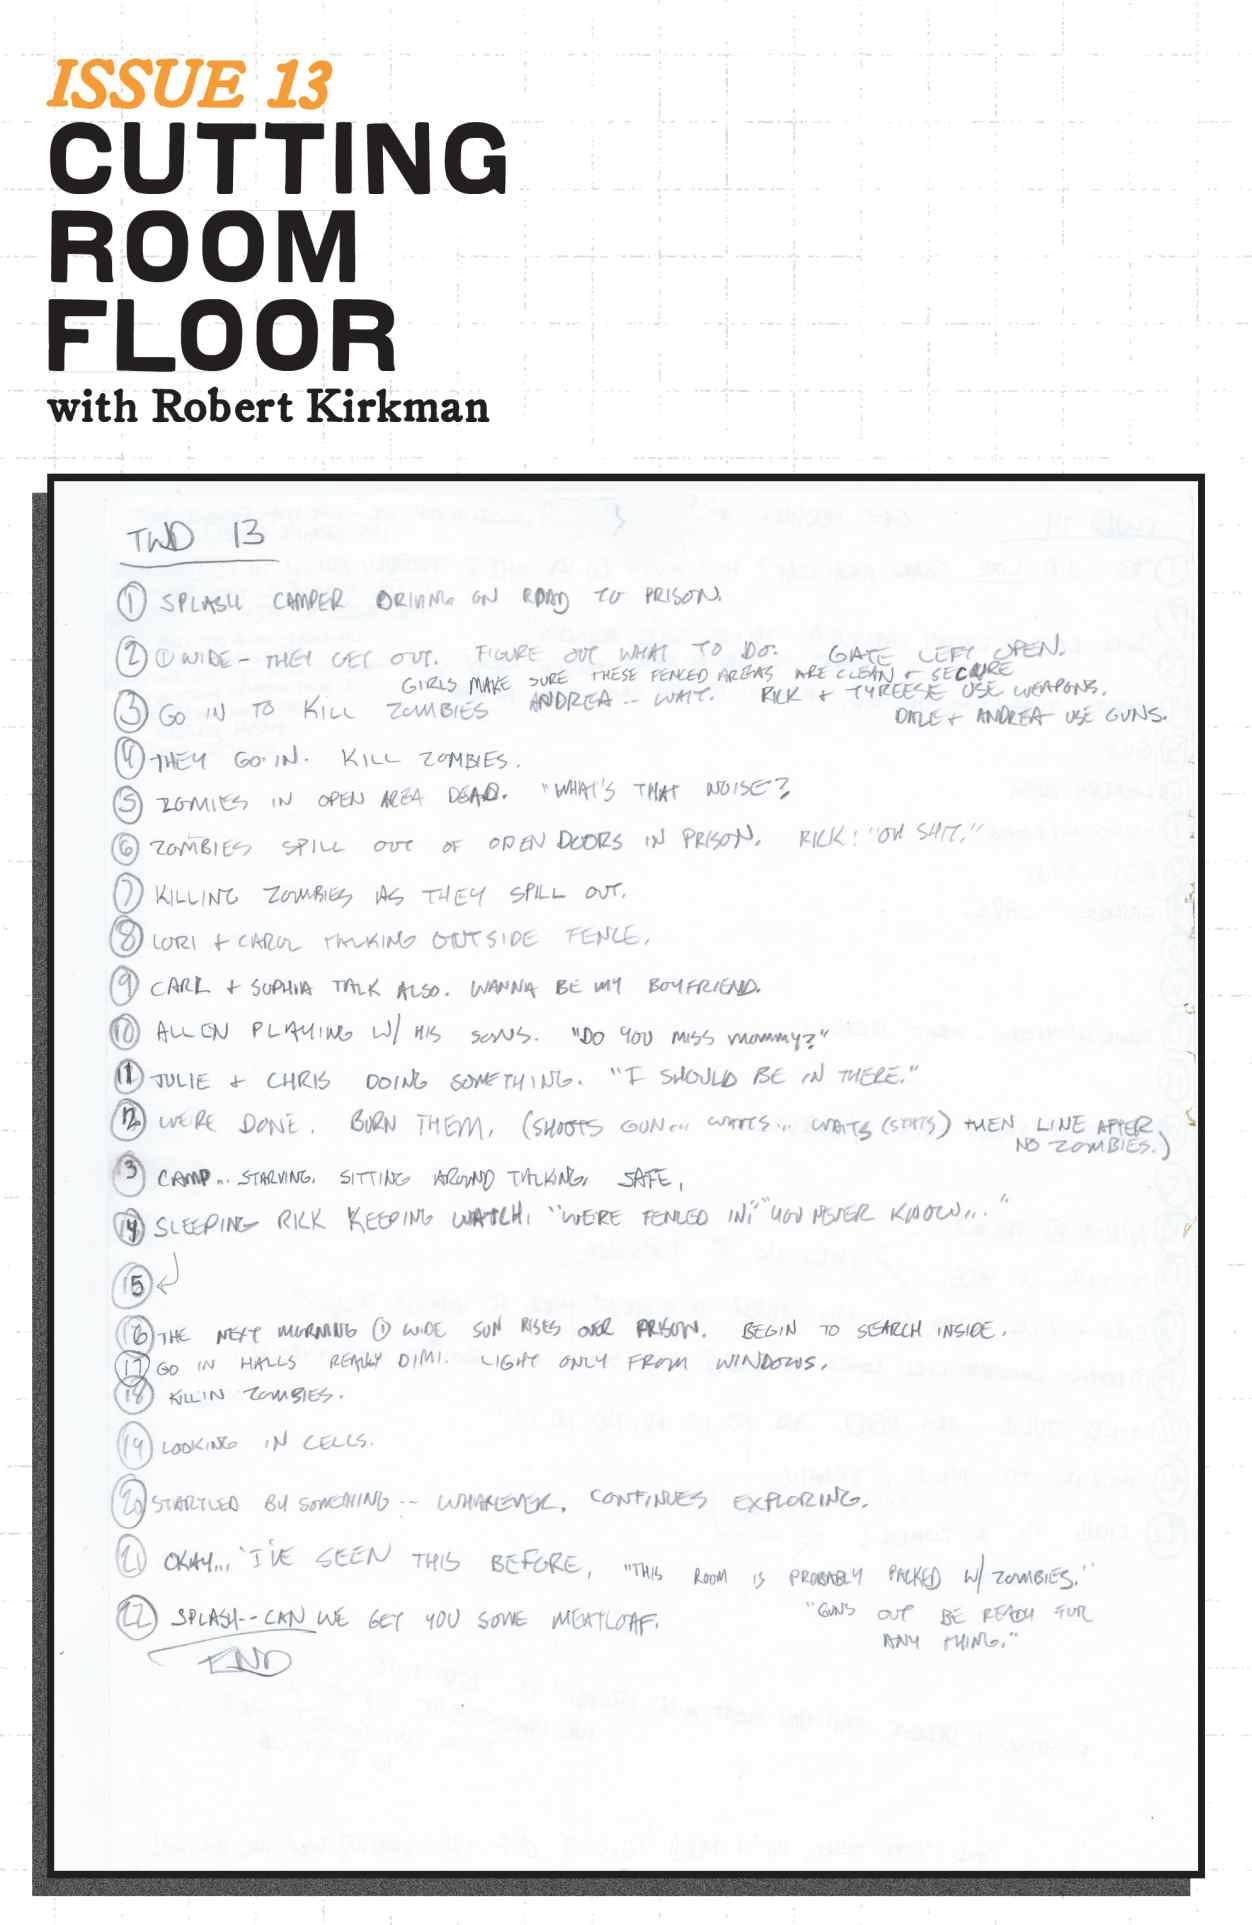 ISSUE 13
CUTTING
ROOM
FLOOR
with Robert Kirkman
TWD 13
① SPLASH CAMPER DRIVING ON ROAD TO PRISON.
② ① WIDE – THEY GET OUT. FIGURE OUT WHAT TO DO. GATE LEFT OPEN.
GIRLS MAKE SURE THESE FENCED AREAS ARE CLEAN + SECURE
③ GO IN TO KILL ZOMBIES ANDREA -- WAIT. RICK + TYREESE USE WEAPONS.
DALE + ANDREA USE GUNS.
④ THEY GO IN. KILL ZOMBIES.
⑤ ZOMIES IN OPEN AREA DEAD. "WHAT'S THAT NOISE?
⑥ ZOMBIES SPILL OUT OF OPEN DOORS IN PRISON. RICK: "OH SHIT."
⑦ KILLING ZOMBIES AS THEY SPILL OUT.
⑧ LORI + CAROL TALKING OUTSIDE FENCE.
⑨ CARL + SOPHIA TALK ALSO. WANNA BE MY BOYFRIEND.
⑩ ALLEN PLAYING W/ HIS SONS. "DO YOU MISS MOMMY?"
⑪ JULIE + CHRIS DOING SOMETHING. "I SHOULD BE IN THERE."
⑫ WE'RE DONE. BURN THEM. (SHOOTS GUN... WAITS... WAITS (STATS) THEN LINE AFTER
NO ZOMBIES.)
⑬ CAMP... STARVING. SITTING AROUND TALKING. SAFE.
⑭ SLEEPING RICK KEEPING WATCH. "WE'RE FENCED IN." "YOU NEVER KNOW..."
⑮
⑯ THE NEXT MORNING ① WIDE SUN RISES OVER PRISON. BEGIN TO SEARCH INSIDE.
⑰ GO IN HALLS REALLY DIM. LIGHT ONLY FROM WINDOWS.
⑱ KILLIN ZOMBIES.
⑲ LOOKING IN CELLS.
⑳ STARTLED BY SOMETHING -- WHATEVER. CONTINUES EXPLORING.
㉑ OKAY... "I'VE SEEN THIS BEFORE. "THIS ROOM IS PROBABLY PACKED W/ ZOMBIES."
"GUNS OUT BE READY FOR
ANY THING."
㉒ SPLASH -- CAN WE GET YOU SOME MEATLOAF.
END